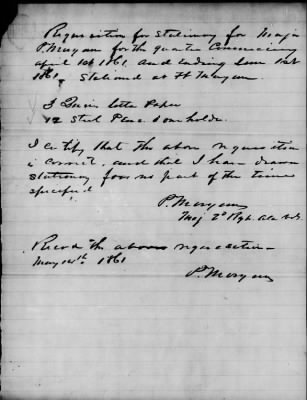 Requisition for Stationery for Maj
P. Morgan for the quarter Commencing
april 1st 1861 and ending June
1861, Stationed at Ft Morgan
3 Quire letter Paper
12 Steel Pens 1 one holder
I certify that the above requisition
is correct, and that I have drawn
stationery for no part of the time
specified
P. Morgan
Maj 2d Regt. Ala
Recd the above requisition
May 14th 1861
P. Morgan